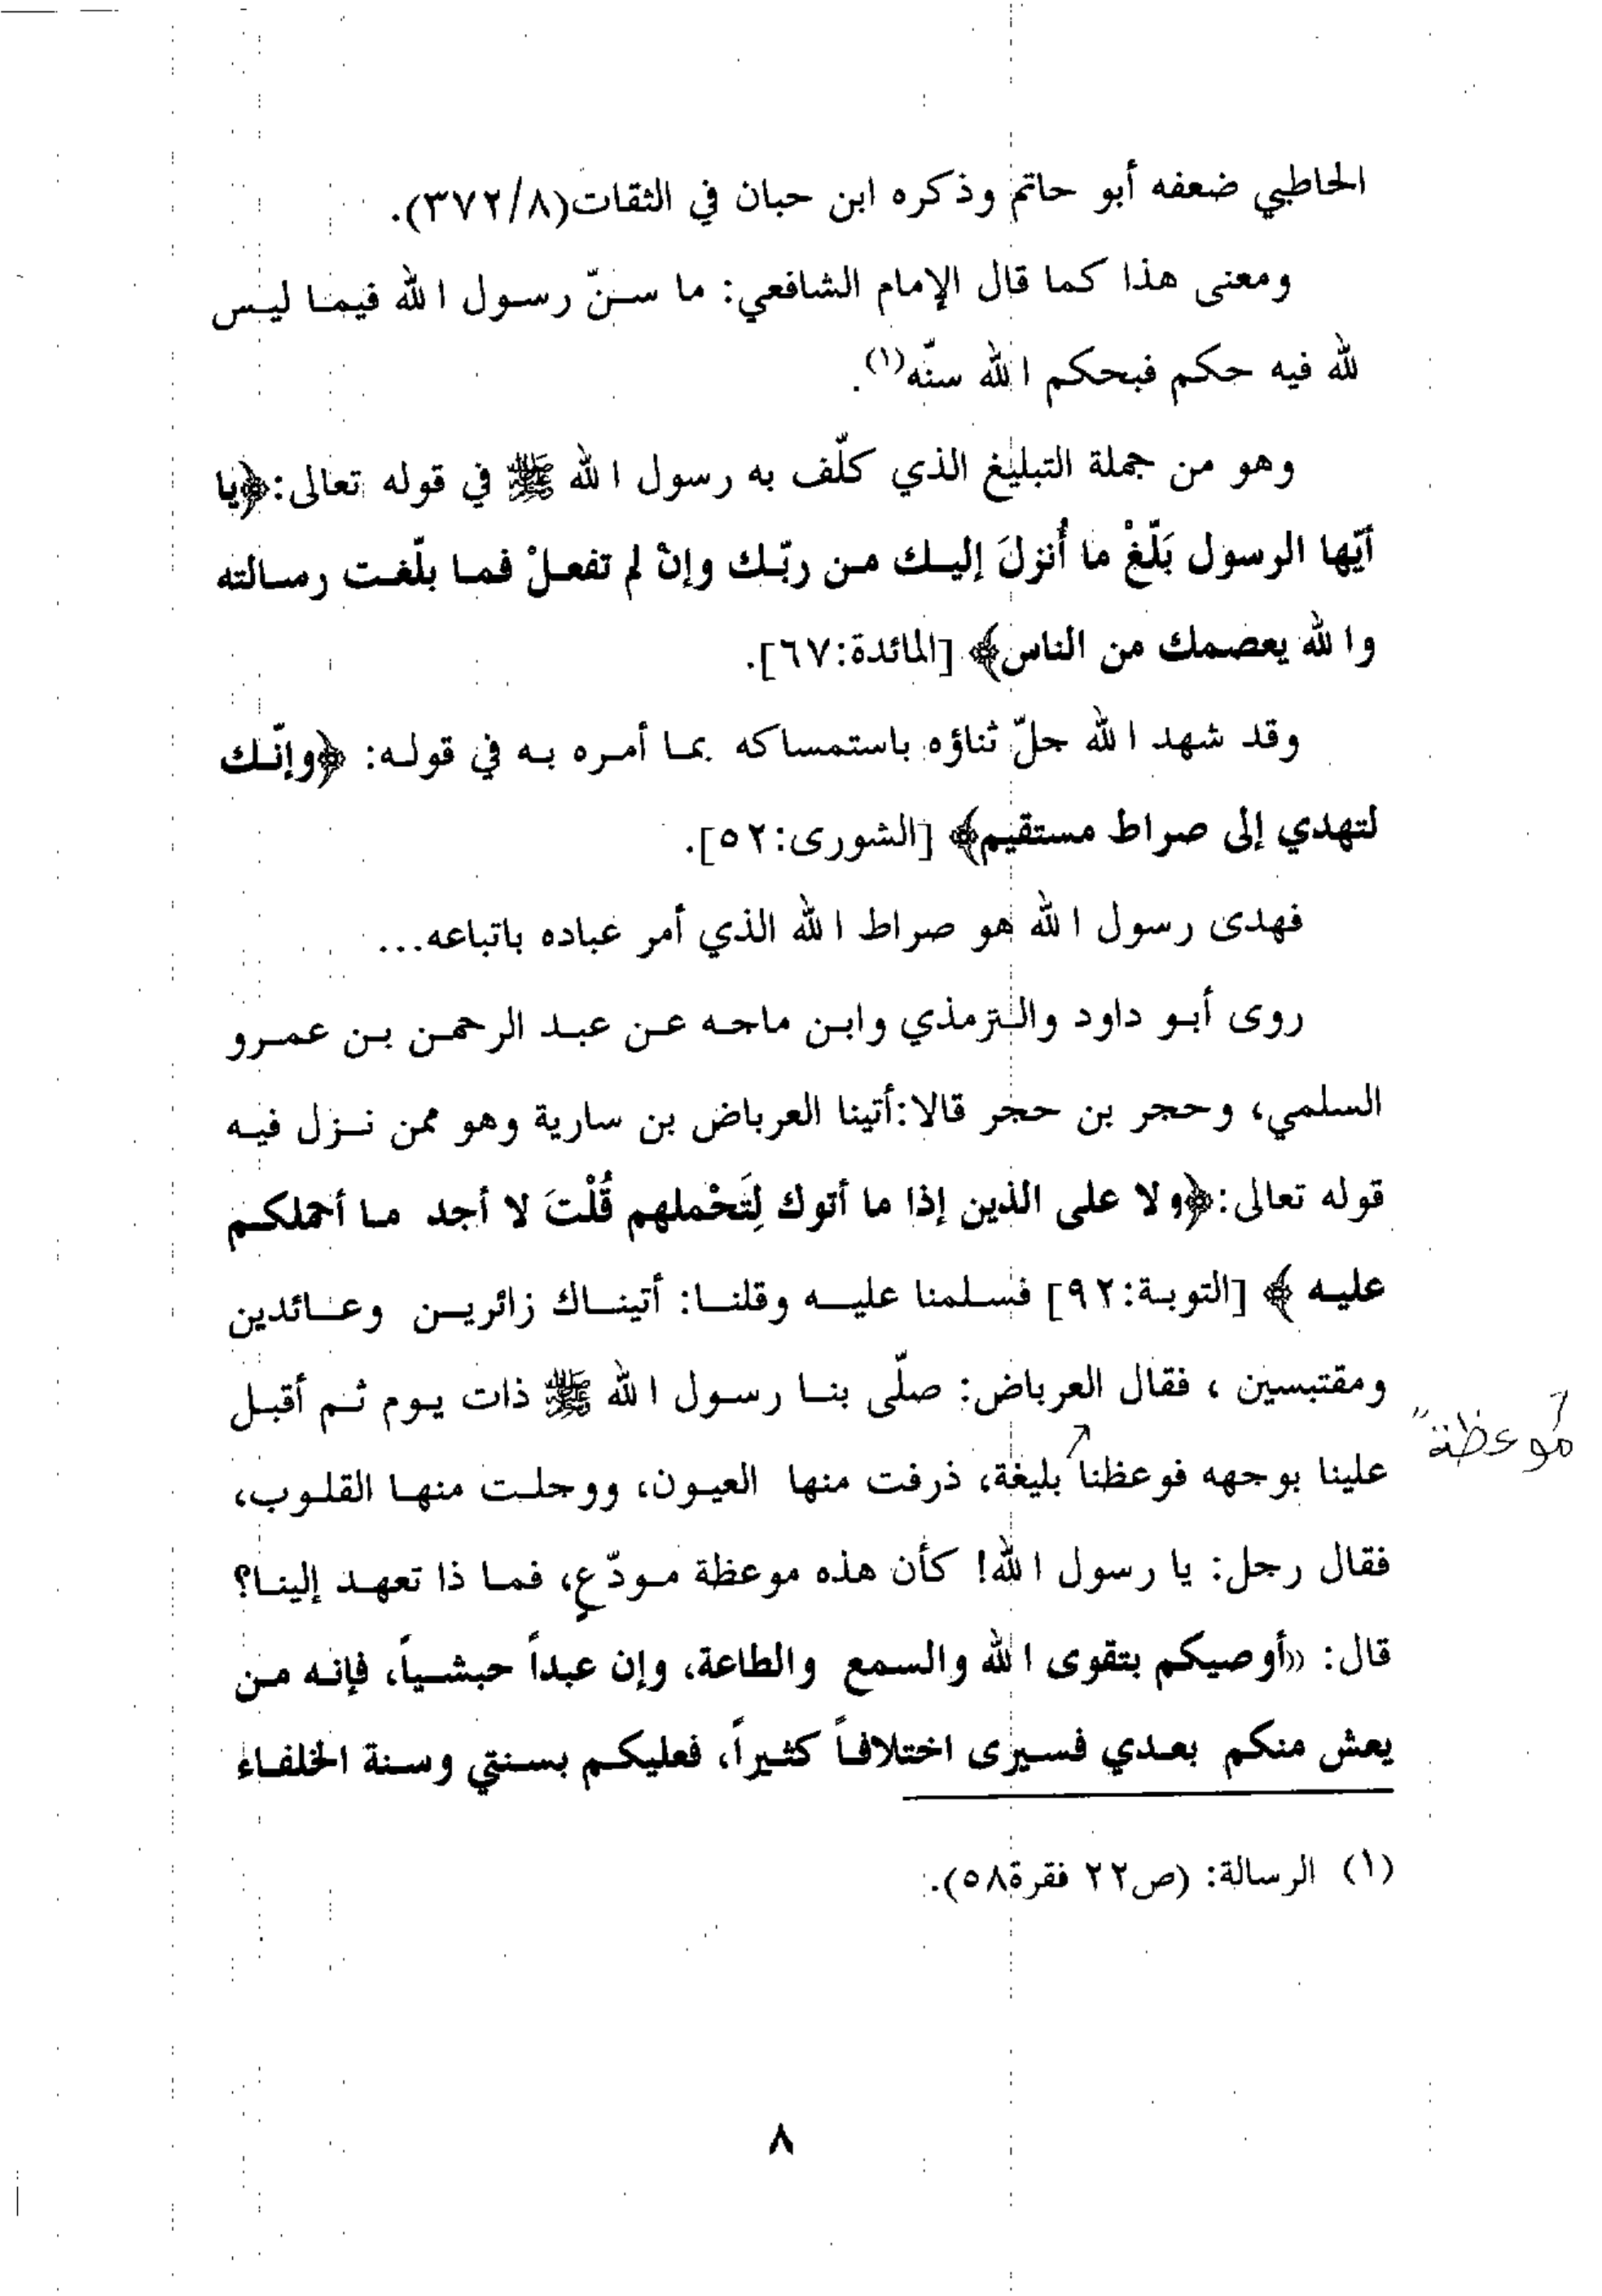 الحاطبي ضعفه أبو حاتم وذكره ابن حبان في الثقات(٣٧٢/٨).
ومعنى هذا كما قال الإمام الشافعي: ما سنّ رسول الله فيما ليس
لله فيه حكم فبحكم الله سنّه(١).
وهو من جملة التبليغ الذي كلّف به رسول الله ﷺ في قوله تعالى:﴿يا
أيّها الرسول بَلّغْ ما أُنزلَ إليك من ربّك وإنْ لم تفعلْ فما بلّغت رسالته
والله يعصمك من الناس﴾ [المائدة:٦٧].
وقد شهد الله جلّ ثناؤه باستمساكه بما أمره به في قوله: ﴿وإنّك
لتهدي إلى صراط مستقيم﴾ [الشورى:٥٢].
فهدى رسول الله هو صراط الله الذي أمر عباده باتباعه...
روى أبو داود والترمذي وابن ماجه عن عبد الرحمن بن عمرو
السلمي، وحجر بن حجر قالا:أتينا العرباض بن سارية وهو ممن نزل فيه
قوله تعالى:﴿ولا على الذين إذا ما أتوك لِتَحْملهم قُلْتَ لا أجد ما أحملكم
عليه ﴾ [التوبة:٩٢] فسلمنا عليه وقلنا: أتيناك زائرين وعائدين
ومقتبسين ، فقال العرباض: صلّى بنا رسول الله ﷺ ذات يوم ثم أقبل
علينا بوجهه فوعظنا بليغة، ذرفت منها العيون، ووجلت منها القلوب،
موعظةً
فقال رجل: يا رسول الله! كأن هذه موعظة مودّعٍ، فما ذا تعهد إلينا؟
قال: «أوصيكم بتقوى الله والسمع والطاعة، وإن عبداً حبشياً، فإنه من
يعش منكم بعدي فسيرى اختلافاً كثيراً، فعليكم بسنتي وسنة الخلفاء
(١) الرسالة: (ص٢٢ فقرة٥٨).
٨